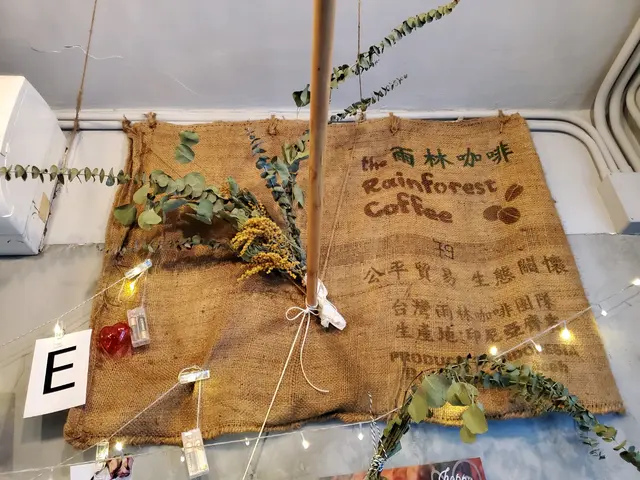 the 雨林咖啡
Rainforest
Coffee
79
公平貿易 生態關懷
台灣雨林咖啡團隊
生產地:印尼亞齊
INDONESIA
E
happy